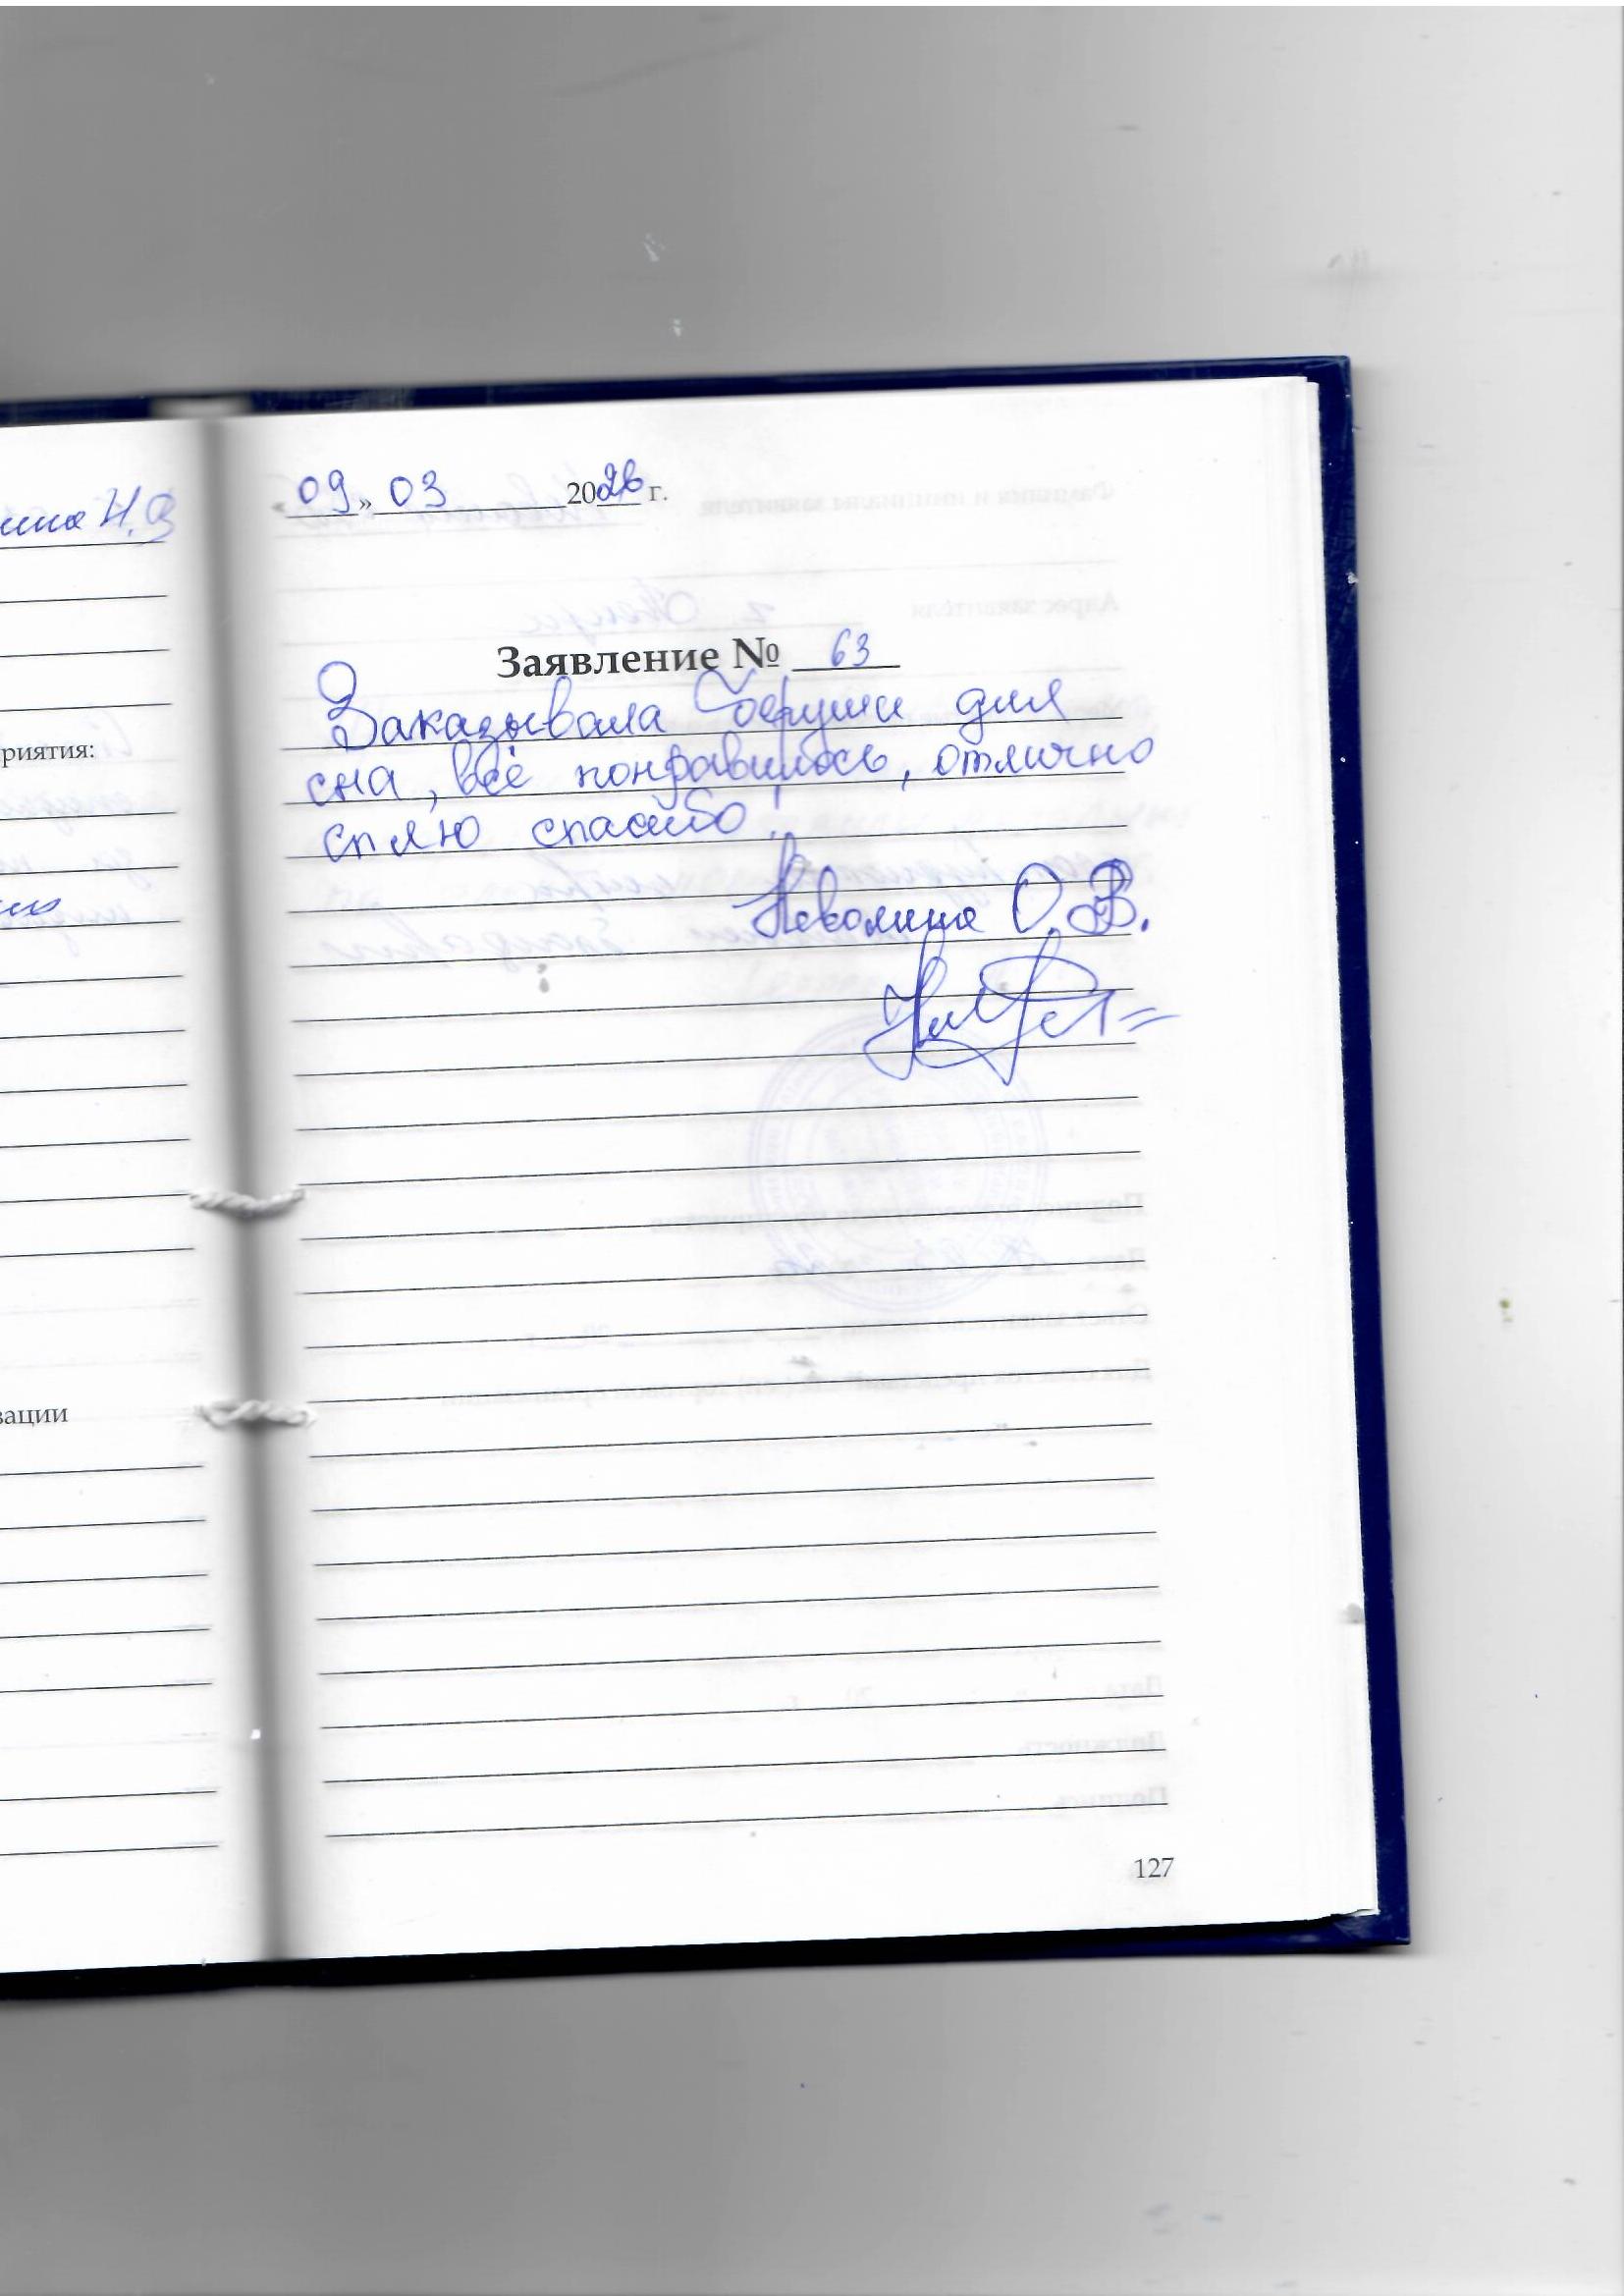 «09» 03 2026 г.
Заявление № 63
Заказывала беруши для
сна, всё понравилось, отлично
сплю спасибо!
Неволина О.В.
127
риятия:
зации